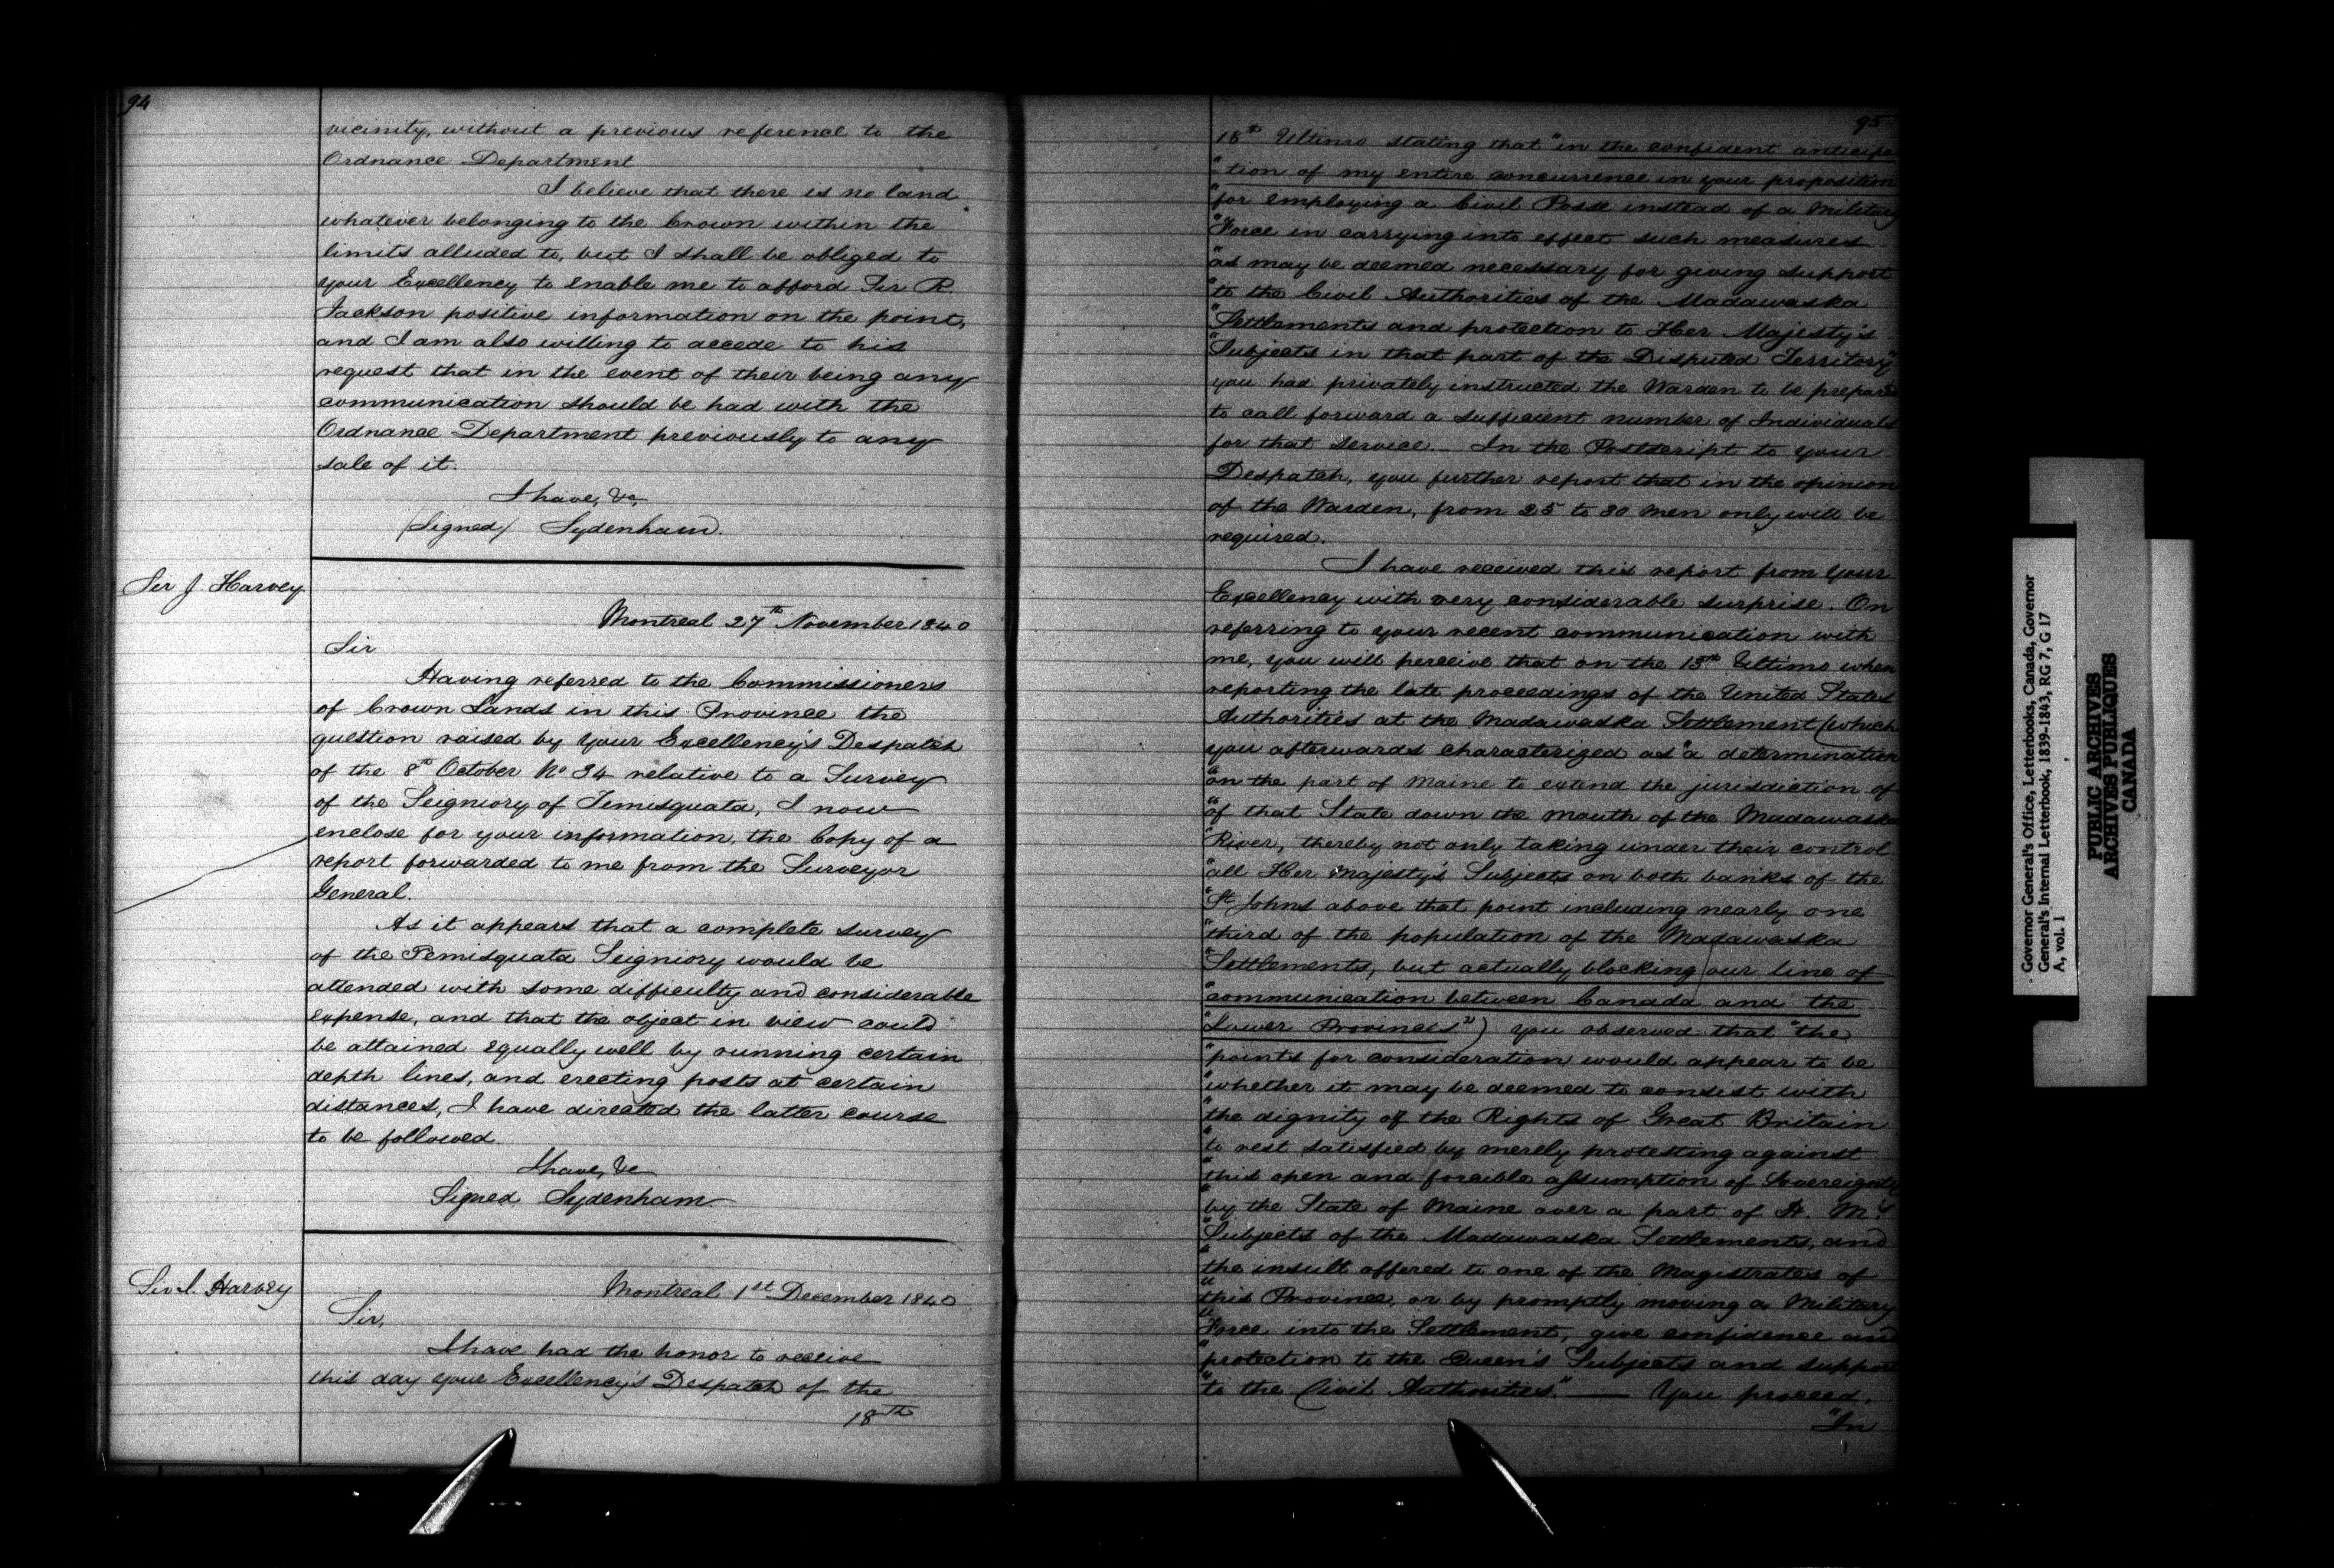 94
vicinity, without a previous reference to the
Ordnance Department
I believe that there is no land
whatever belonging to the Crown within the
limits alluded to, but I shall be obliged to
your Excellency to enable me to afford Sir R.
Jackson positive information on the point,
and I am also willing to accede to his
request that in the event of their being any
communication should be had with the
Ordnance Department previously to any
sale of it.
I have, &c,
(Signed) Sydenham.
Sir J. Harvey
Montreal 27th November 1840
Sir
Having referred to the Commissioners
of Crown Lands in this Province the
question raised by your Excellency's Despatch
of the 8th October No 34 relative to a Survey
of the Seigniory of Temisquata, I now
enclose for your information, the Copy of a
report forwarded to me from the Surveyor
General.
As it appears that a complete survey
of the Temisquata Seigniory would be
attended with some difficulty and considerable
expense, and that the object in view could
be attained equally well by running certain
depth lines, and erecting posts at certain
distances, I have directed the latter course
to be followed.
I have, &c
Signed Sydenham
Sir J. Harvey
Montreal 1st December 1840
Sir,
I have had the honor to receive
this day your Excellency's Despatch of the
18th
95
18th Ultimo stating that "in the confident anticipa
"-tion of my entire concurrence in your proposition
"for employing a Civil Posse instead of a Military
"Force in carrying into effect such measures
"as may be deemed necessary for giving support
"to the Civil Authorities of the Madawaska
"Settlements and protection to Her Majesty's
"Subjects in that part of the Disputed Territory"
you had privately instructed the Warden to be prepared
to call forward a sufficient number of Individuals
for that service.- In the Postscript to your
Despatch, you further report that in the opinion
of the Warden, from 25 to 30 men only will be
required.
I have received this report from Your
Excellency with very considerable surprise. On
referring to your recent communication with
me, you will perceive that on the 13th Ultimo when
reporting the late proceedings of the United States
Authorities at the Madawaska Settlement (which
you afterwards characterized as "a determination
"on the part of Maine to extend the jurisdiction of
"of that State down the mouth of the Madawaska
"River, thereby not only taking under their control
"all Her Majesty's Subjects on both banks of the
"St Johns above that point including nearly one
"third of the population of the Madawaska
"Settlements, but actually blocking our line of
"communication between Canada and the
"Lower Provinces") you observed that "the
"points for consideration would appear to be
"whether it may be deemed to consist with
"the dignity of the Rights of Great Britain
"to rest satisfied by merely protesting against
"this open and forcible assumption of Sovereignty
"by the State of Maine over a part of H. M.'s
"Subjects of the Madawaska Settlements, and
"the insult offered to one of the Magistrates of
"this Province, or by promptly moving a Military
"Force into the Settlement, give confidence and
"protection to the Queen's Subjects and support
"to the Civil Authorities." — You proceed,
"In
Governor General's Office, Letterbooks, Canada, Governor
General's Internal Letterbook, 1839-1843, RG 7, G 17
A, vol. 1
PUBLIC ARCHIVES
ARCHIVES PUBLIQUES
CANADA